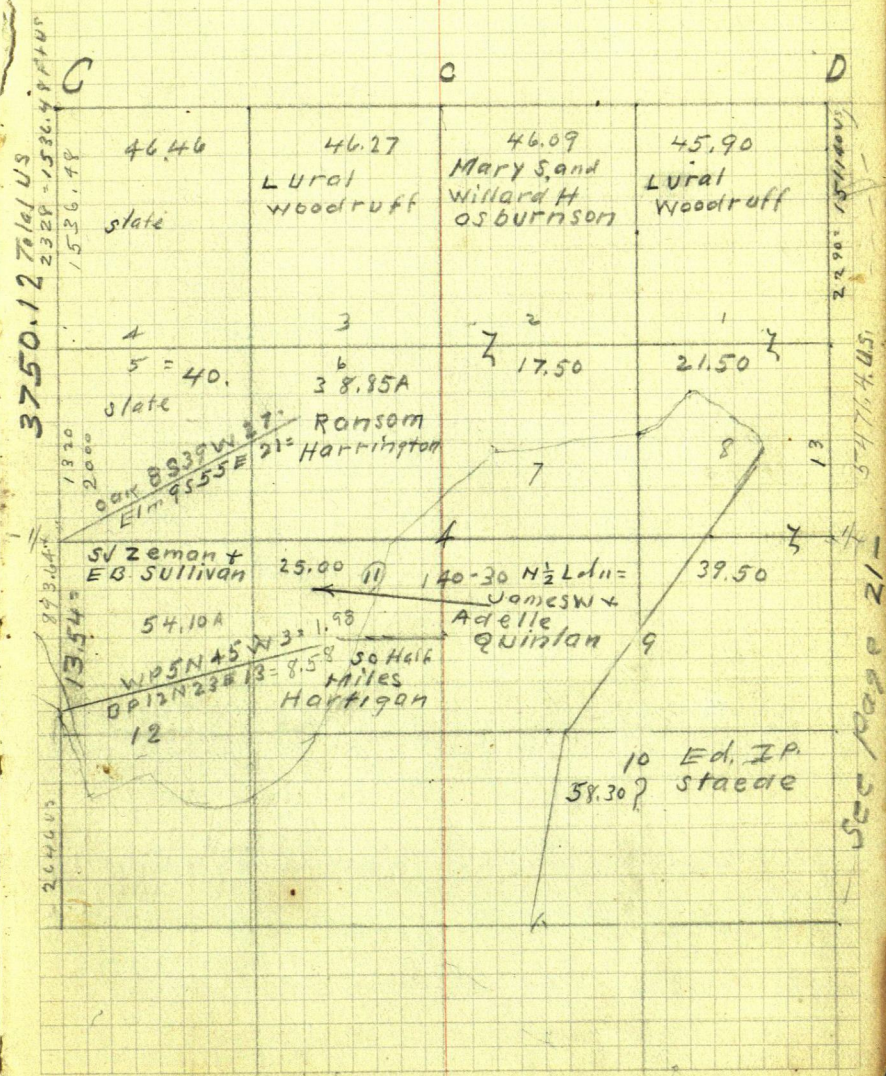 C
O
D
3750.12 Total US
2328 = 1536.48 Ft US
1536.48
46.46
state
4
46.27
L Ural
Woodruff
3
46.09
Mary S, and
Willard H
Osburnson
2
45.90
L Ural
Woodruff
1
5 = 40.
state
6
38.85A
Ransom
Harrington
17.50
7
21.50
8
13
1320
2000
Oak 8 S39W 27=
Elm 9 S55E 21=
SJ Zeman +
EB Sullivan
54.10A
25.00
11
4
140-30 N½ Lot 11=
James W +
Adelle
Quinlan
39.50
9
893.64
13.54=
WP5N45W3=1.98
BP12N23E13=8.58
So Half
Miles
Hartigan
12
10 Ed. I P.
58.30? Staede
2640 US
5471.4. U.S.
See Page 21-